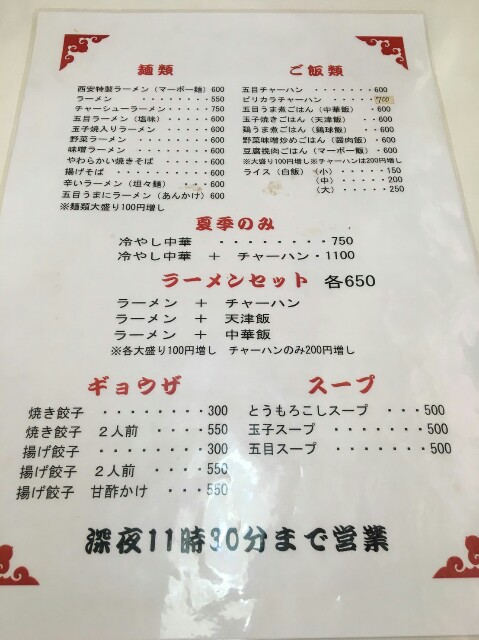 麺類
西安特製ラーメン（マーボー麺）600
ラーメン ・・・・・・・・550
チャーシューラーメン ・・・・750
五目ラーメン（塩味）・・・・600
玉子焼入りラーメン ・・・・・600
野菜ラーメン ・・・・・・・・600
味噌ラーメン ・・・・・・・・600
やわらかい焼きそば ・・・・・600
揚げそば ・・・・・・・・・・600
辛いラーメン（坦々麺） ・・・600
五目うまにラーメン（あんかけ）600
※麺類大盛り100円増し
ご飯類
五目チャーハン ・・・・・・・600
ピリカラチャーハン ・・・・・700
五目うま煮ごはん（中華飯）・600
玉子焼きごはん（天津飯）・・600
鶏うま煮ごはん（鶏球飯）・・600
野菜味噌炒めごはん（醤肉飯）・600
豆腐挽肉ごはん（マーボー飯）・600
※大盛り100円増し※チャーハンは200円増し
ライス（白飯）（小）・・・・・150
（中）・・・・・200
（大）・・・・・250
夏季のみ
冷やし中華 ・・・・・・・・750
冷やし中華 ＋ チャーハン・1100
ラーメンセット 各650
ラーメン ＋ チャーハン
ラーメン ＋ 天津飯
ラーメン ＋ 中華飯
※各大盛り100円増し チャーハンのみ200円増し
ギョウザ
焼き餃子 ・・・・・・・・300
焼き餃子 ２人前 ・・・・550
揚げ餃子 ・・・・・・・・300
揚げ餃子 ２人前 ・・・・550
揚げ餃子 甘酢かけ ・・・・550
スープ
とうもろこしスープ ・・・500
玉子スープ ・・・・・・・500
五目スープ ・・・・・・・500
深夜11時30分まで営業